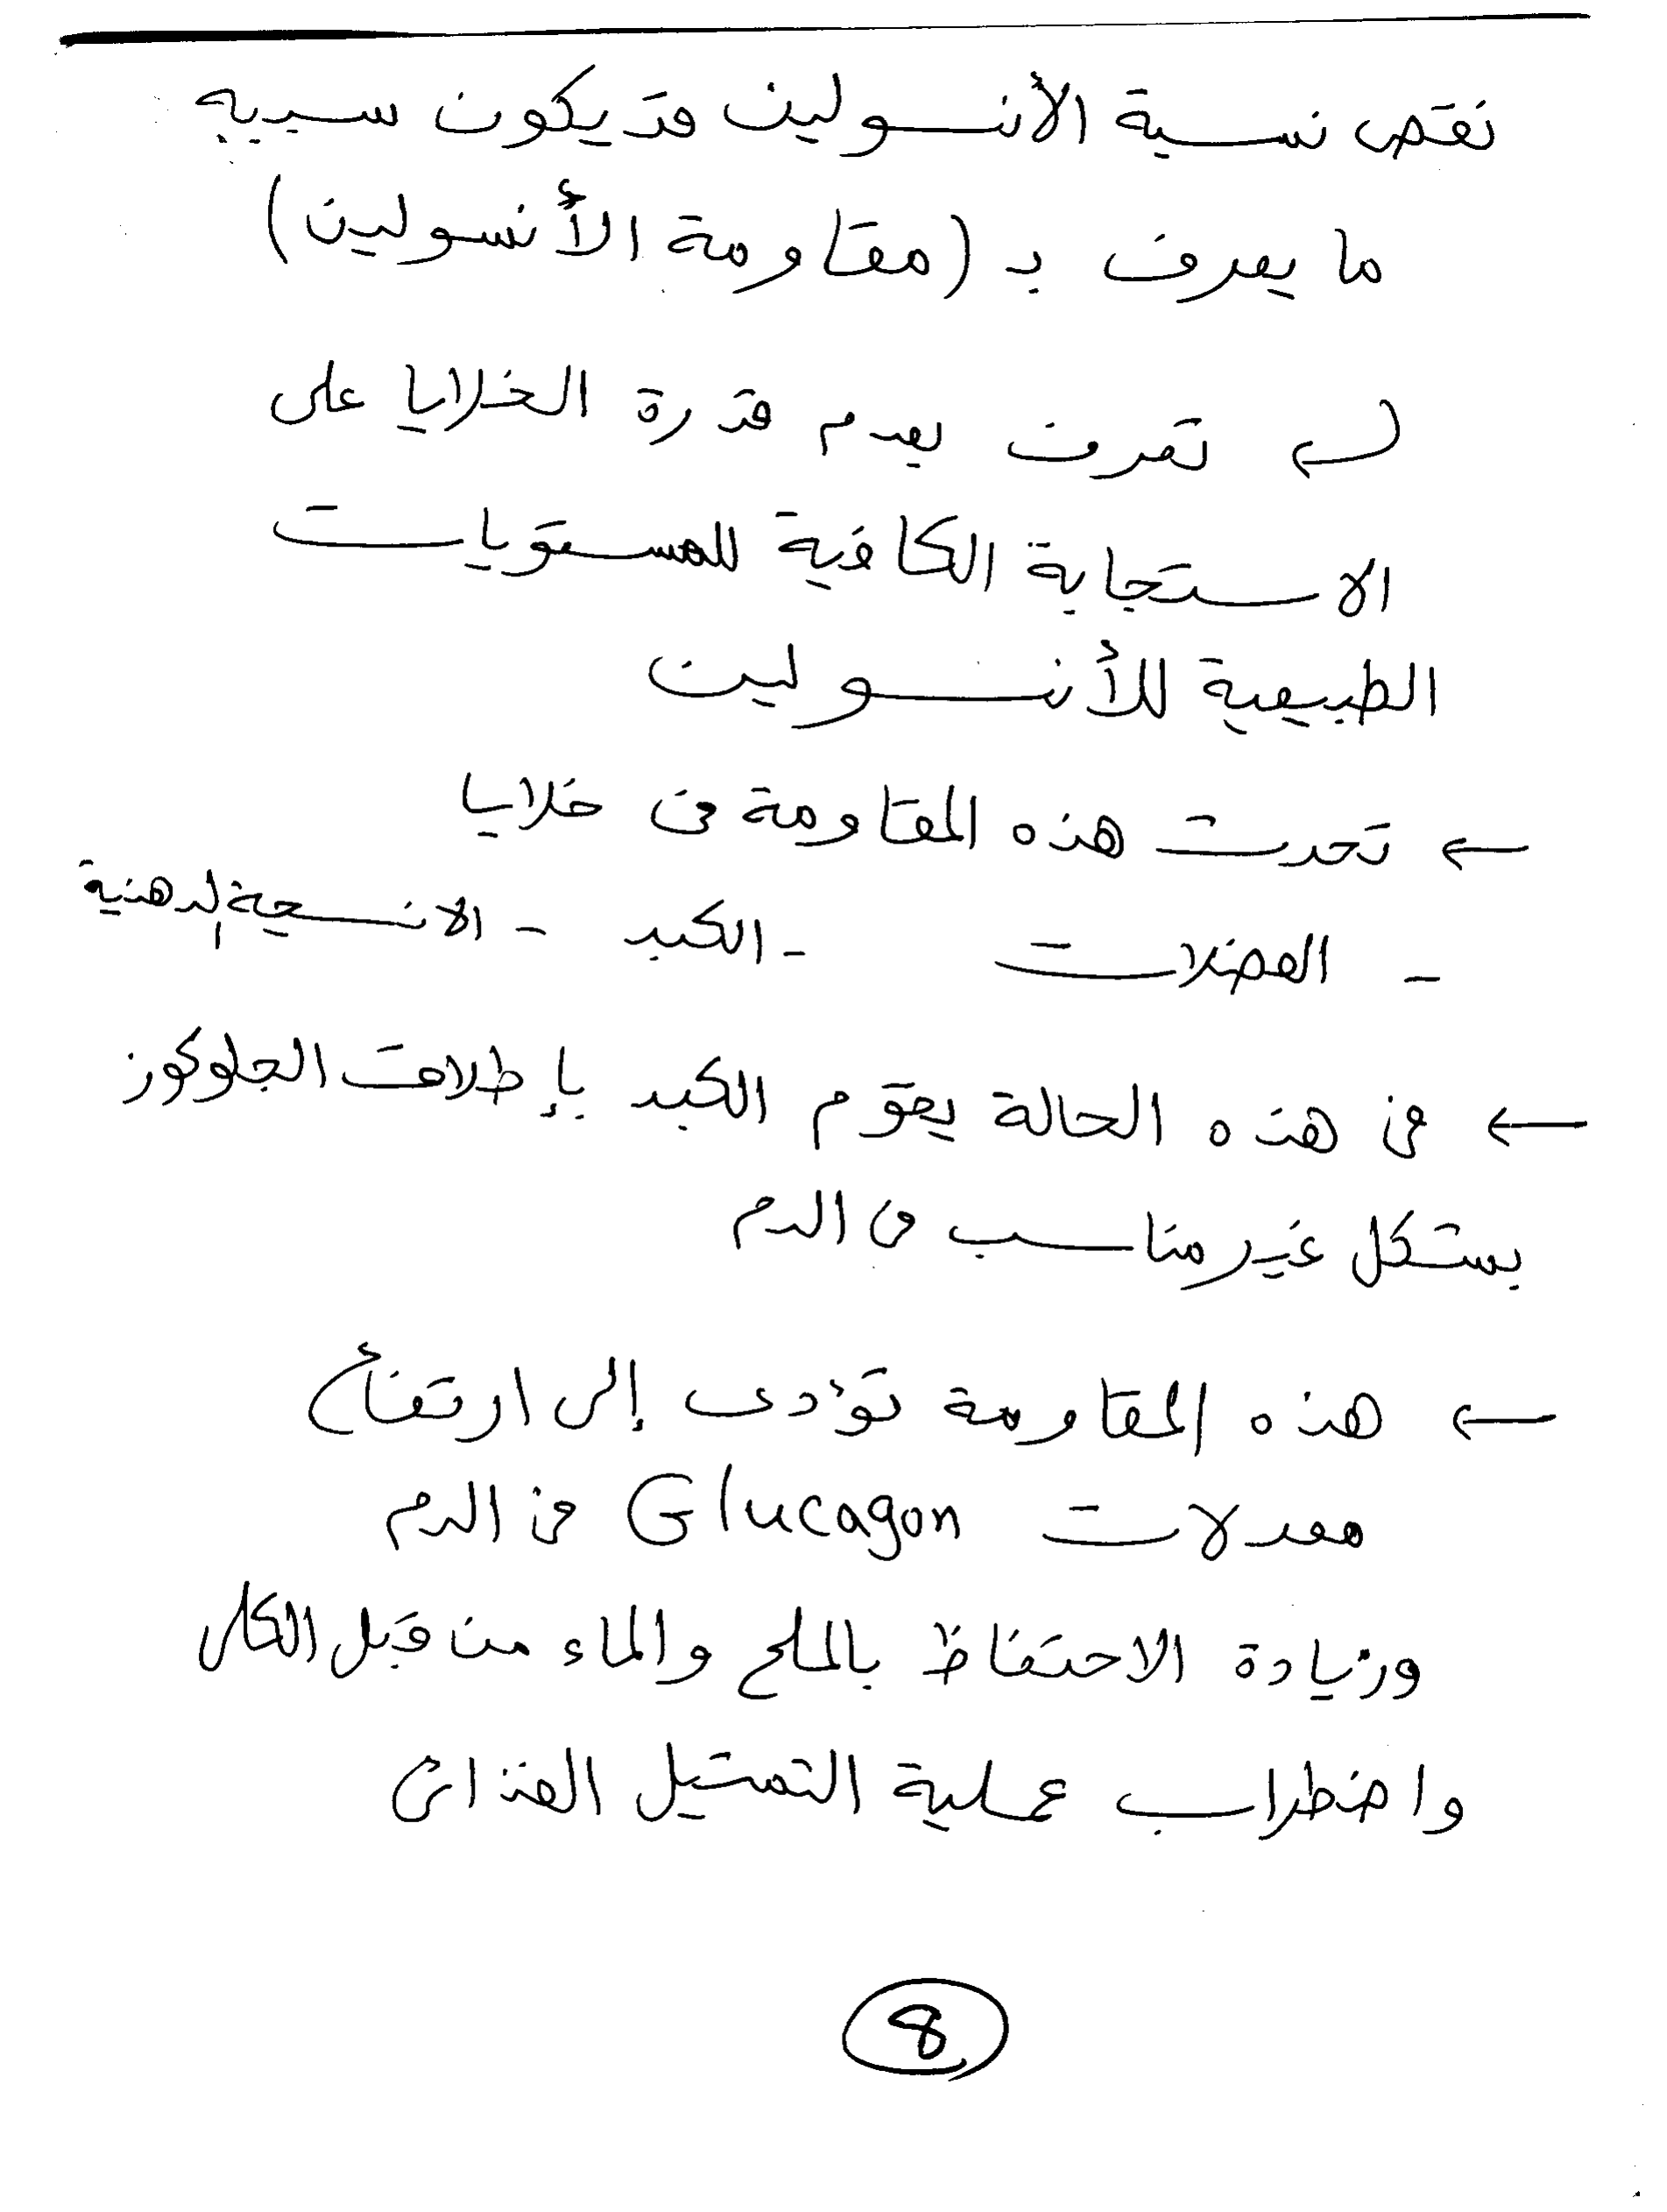 نقص نسبة الأنسولين قد يكون سببه
ما يعرف بـ (مقاومة الأنسولين)
↵ تعرف بعدم قدرة الخلايا على
الاستجابة الكافية للمستويات
الطبيعية للأنسولين
← تحدث هذه المقاومة فى خلايا
- العضلات - الكبد - الانسجة الدهنية
← فى هذه الحالة يقوم الكبد بإطلاق الجلوكوز
بشكل غير مناسب فى الدم
← هذه المقاومة تؤدى إلى ارتفاع
معدلات Glucagon فى الدم
وزيادة الاحتفاظ بالملح والماء من قبل الكلى
واضطراب عملية التمثيل الغذائى
8